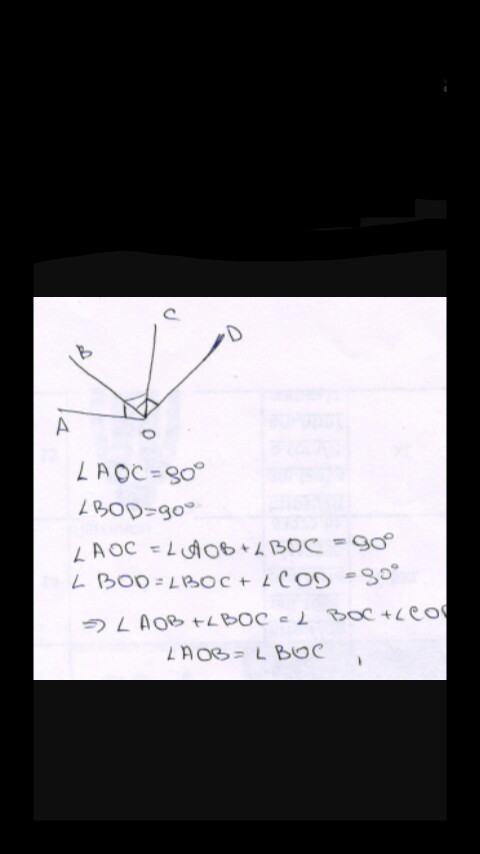 C
B
D
A
O
∠AOC=90°
∠BOD=90°
∠AOC =∠AOB+∠BOC =90°
∠ BOD=∠BOC+ ∠COD =90°
⇒ ∠ AOB+∠BOC = ∠ BOC+∠COD
∠AOB= ∠ BOC